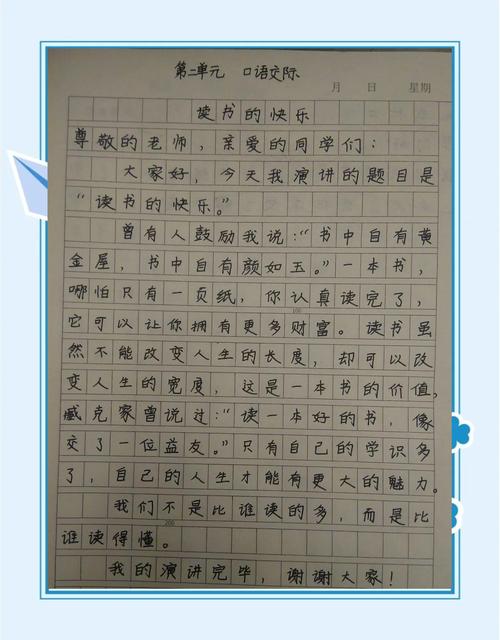 第二单元 口语交际
月 日 星期
读书的快乐
尊敬的老师，亲爱的同学们：
大家好，今天我演讲的题目是
“读书的快乐。”
曾有人鼓励我说：“书中自有黄
金屋，书中自有颜如玉。”一本书，
哪怕只有一页纸，你认真读完了，
100
它可以让你拥有更多财富。读书虽
然不能改变人生的长度，却可以改
变人生的宽度，这是一本书的价值，
臧克家曾说过：“读一本好的书，像
交了一位益友。”只有自己的学识多
了，自己的人生才能有更大的魅力。
我们不是比谁读的多，而是比
200
谁读得懂。
我的演讲完毕，谢谢大家！